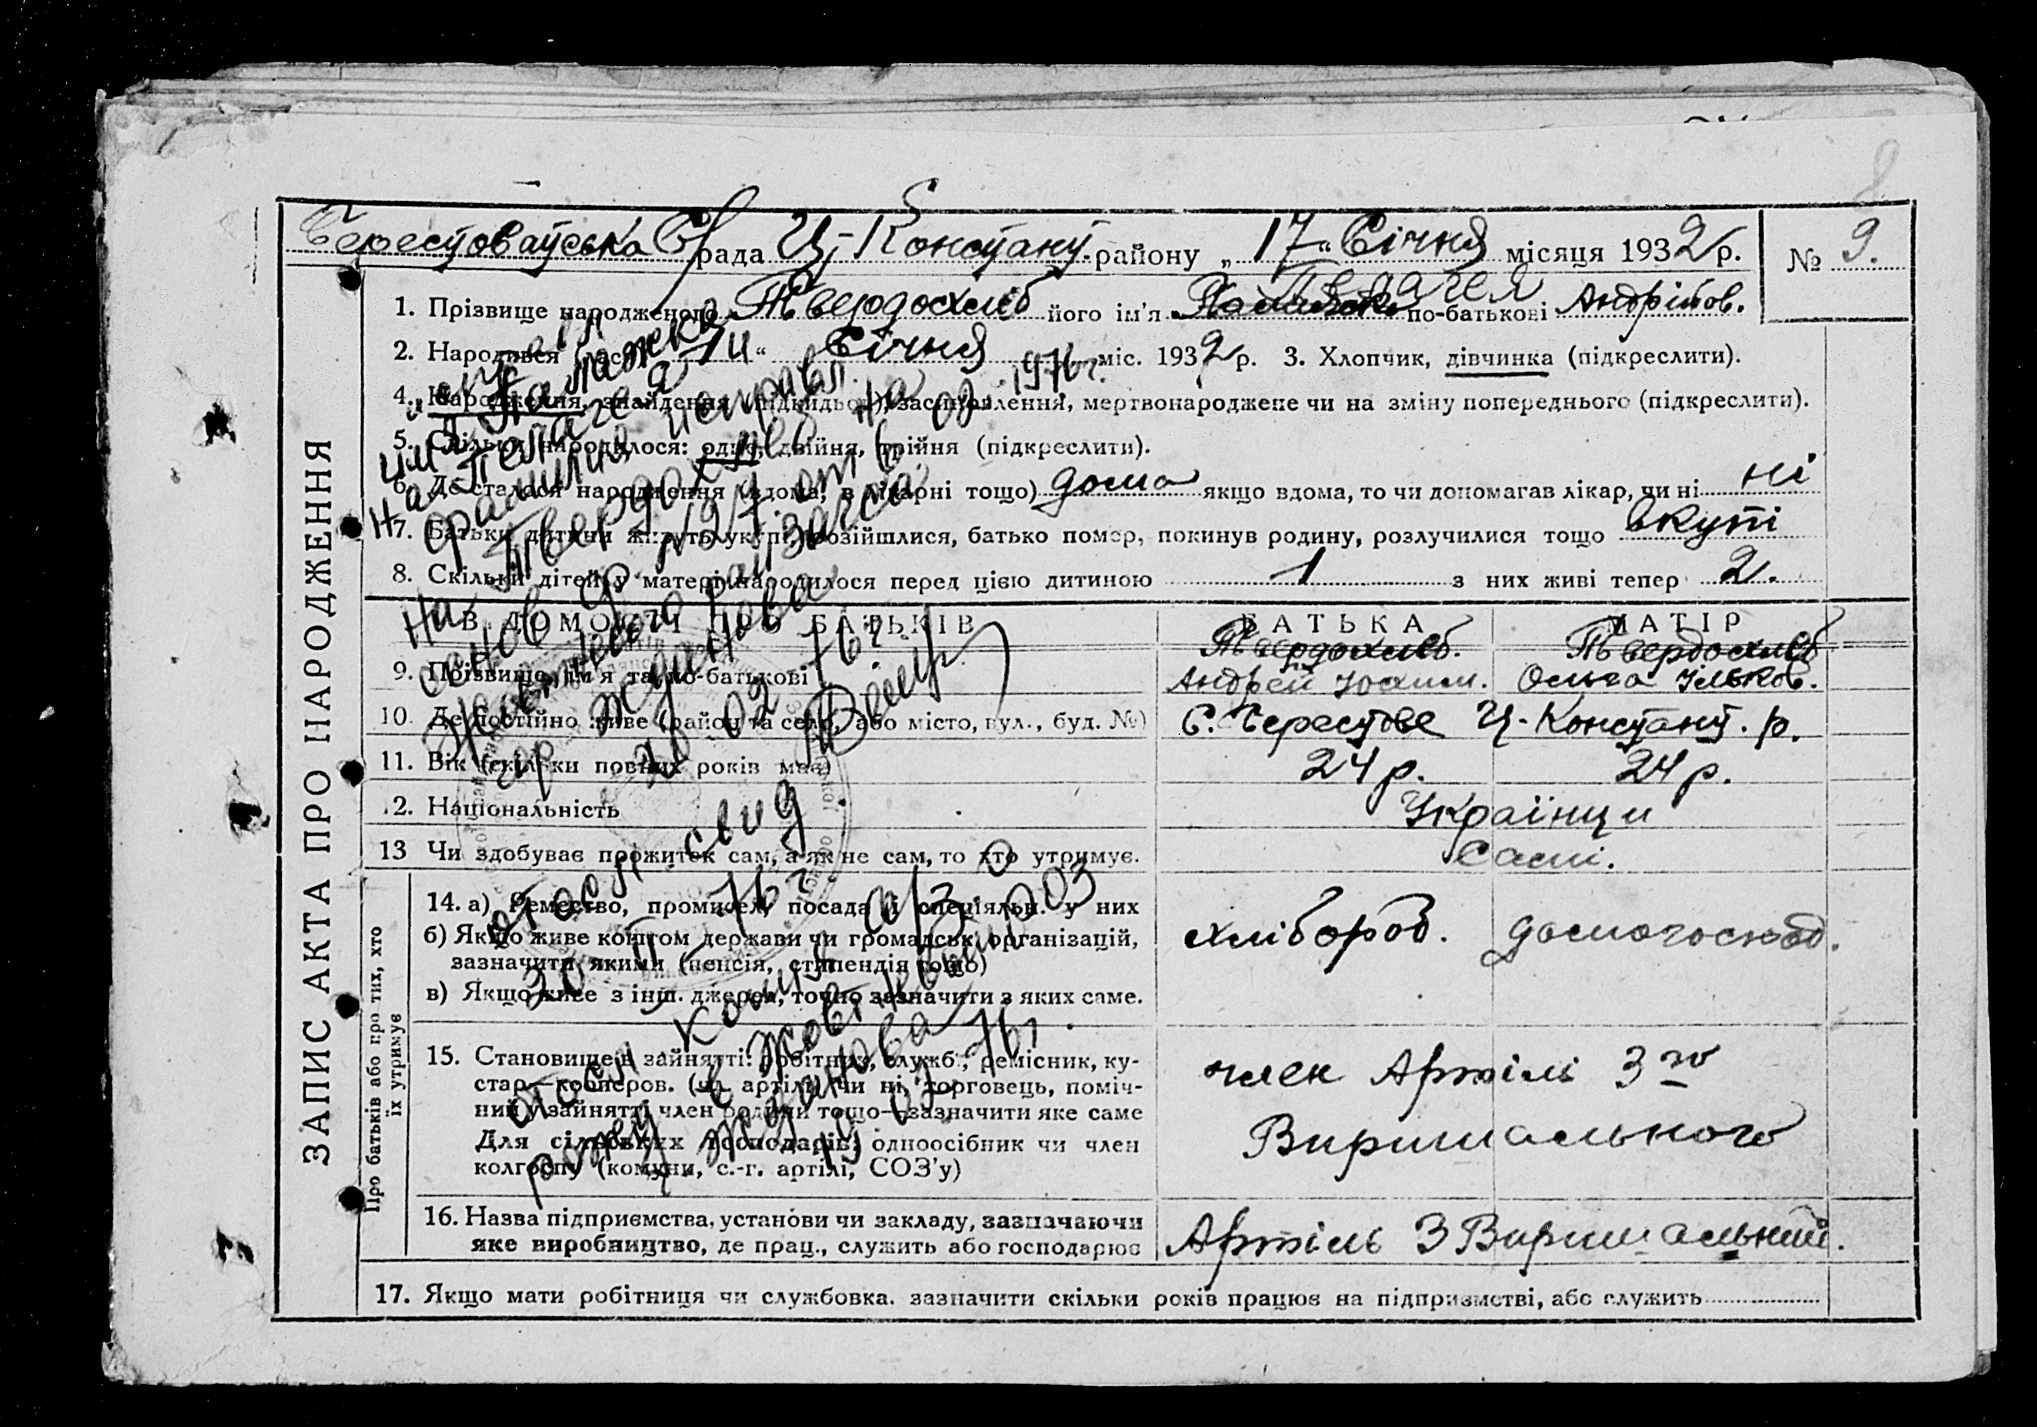 Берестоватська С/рада Ц-Констант. району „17“ Січня місяця 1932 р. № 9.
Пелагея
1. Прізвище народженого Твердохліб його ім'я по-батькові Андрійов.
2. Народився (лася) „14“ Січня міс. 1932 р. 3. Хлопчик, дівчинка (підкреслити).
4. Народження, знайдення (підкидьок), засиновлення, мертвонароджене чи на зміну попереднього (підкреслити).
5. Скільки народилося: одне, двійня, трійня (підкреслити).
6. Де сталося народження (вдома, в лікарні тощо) дома якщо вдома, то чи допомагав лікар, чи ні ні
7. Батьки дитини живуть укупі, розійшлися, батько помер, покинув родину, розлучилися тощо вкупі
8. Скільки дітей у матері народилося перед цією дитиною 1 з них живі тепер 2.
ЗАПИС АКТА ПРО НАРОДЖЕННЯ
ВІДОМОСТІ ПРО БАТЬКІВ БАТЬКА МАТІР
Твердохліб. Твердохліб
9. Прізвище, ім'я та по-батькові Андрей Юхим. Ольга Ільков.
10. Де постійно живе (район та село, або місто, вул., буд. №) С. Берестове Ц-Констант. р.
11. Вік (скільки повних років має) 24 р. 24 р.
12. Національність Українци
13 Чи здобуває прожиток сам, а як не сам, то хто утримує. Самі.
Про батьків або про тих, хто їх утримує
14. а) Ремество, промисел, посада і спеціяльн. у них хлібороб. домогоспод.
б) Якщо живе коштом держави чи громадськ. організацій,
зазначити якими (пенсія, стипендія тощо)
в) Якщо живе з інш. джерел, точно зазначити з яких саме.
15. Становище в зайнятті: робітник, служб., ремісник, ку-
стар—кооперов. (чл. артілі) чи ні, торговець, поміч-
ний у зайнятті член родини тощо—зазначити яке саме
Для сільських господарів: одноосібник чи член
колгоспу (комуни, с.-г. артілі, СОЗ'у)
член Артілі 3го
Виришального
16. Назва підприємства, установи чи закладу, зазначаючи
яке виробництво, де прац., служить або господарює Артіль 3 Виришальний.
17. Якщо мати робітниця чи службовка, зазначити скільки років працює на підприємстві, або служить
имя Палажка
на Пелагея
фамилия исправл.
на Твердохлеб на
основ. ср. №27 от 6. 02. 1976 г.
Жовтневого райзагса
гр. Жданова
20.02 76 г.
отосл свид
30 76 г
отосл копию а/з о
рожд в Жовтневый РОЗ
г Жданова
19.02 76 г.